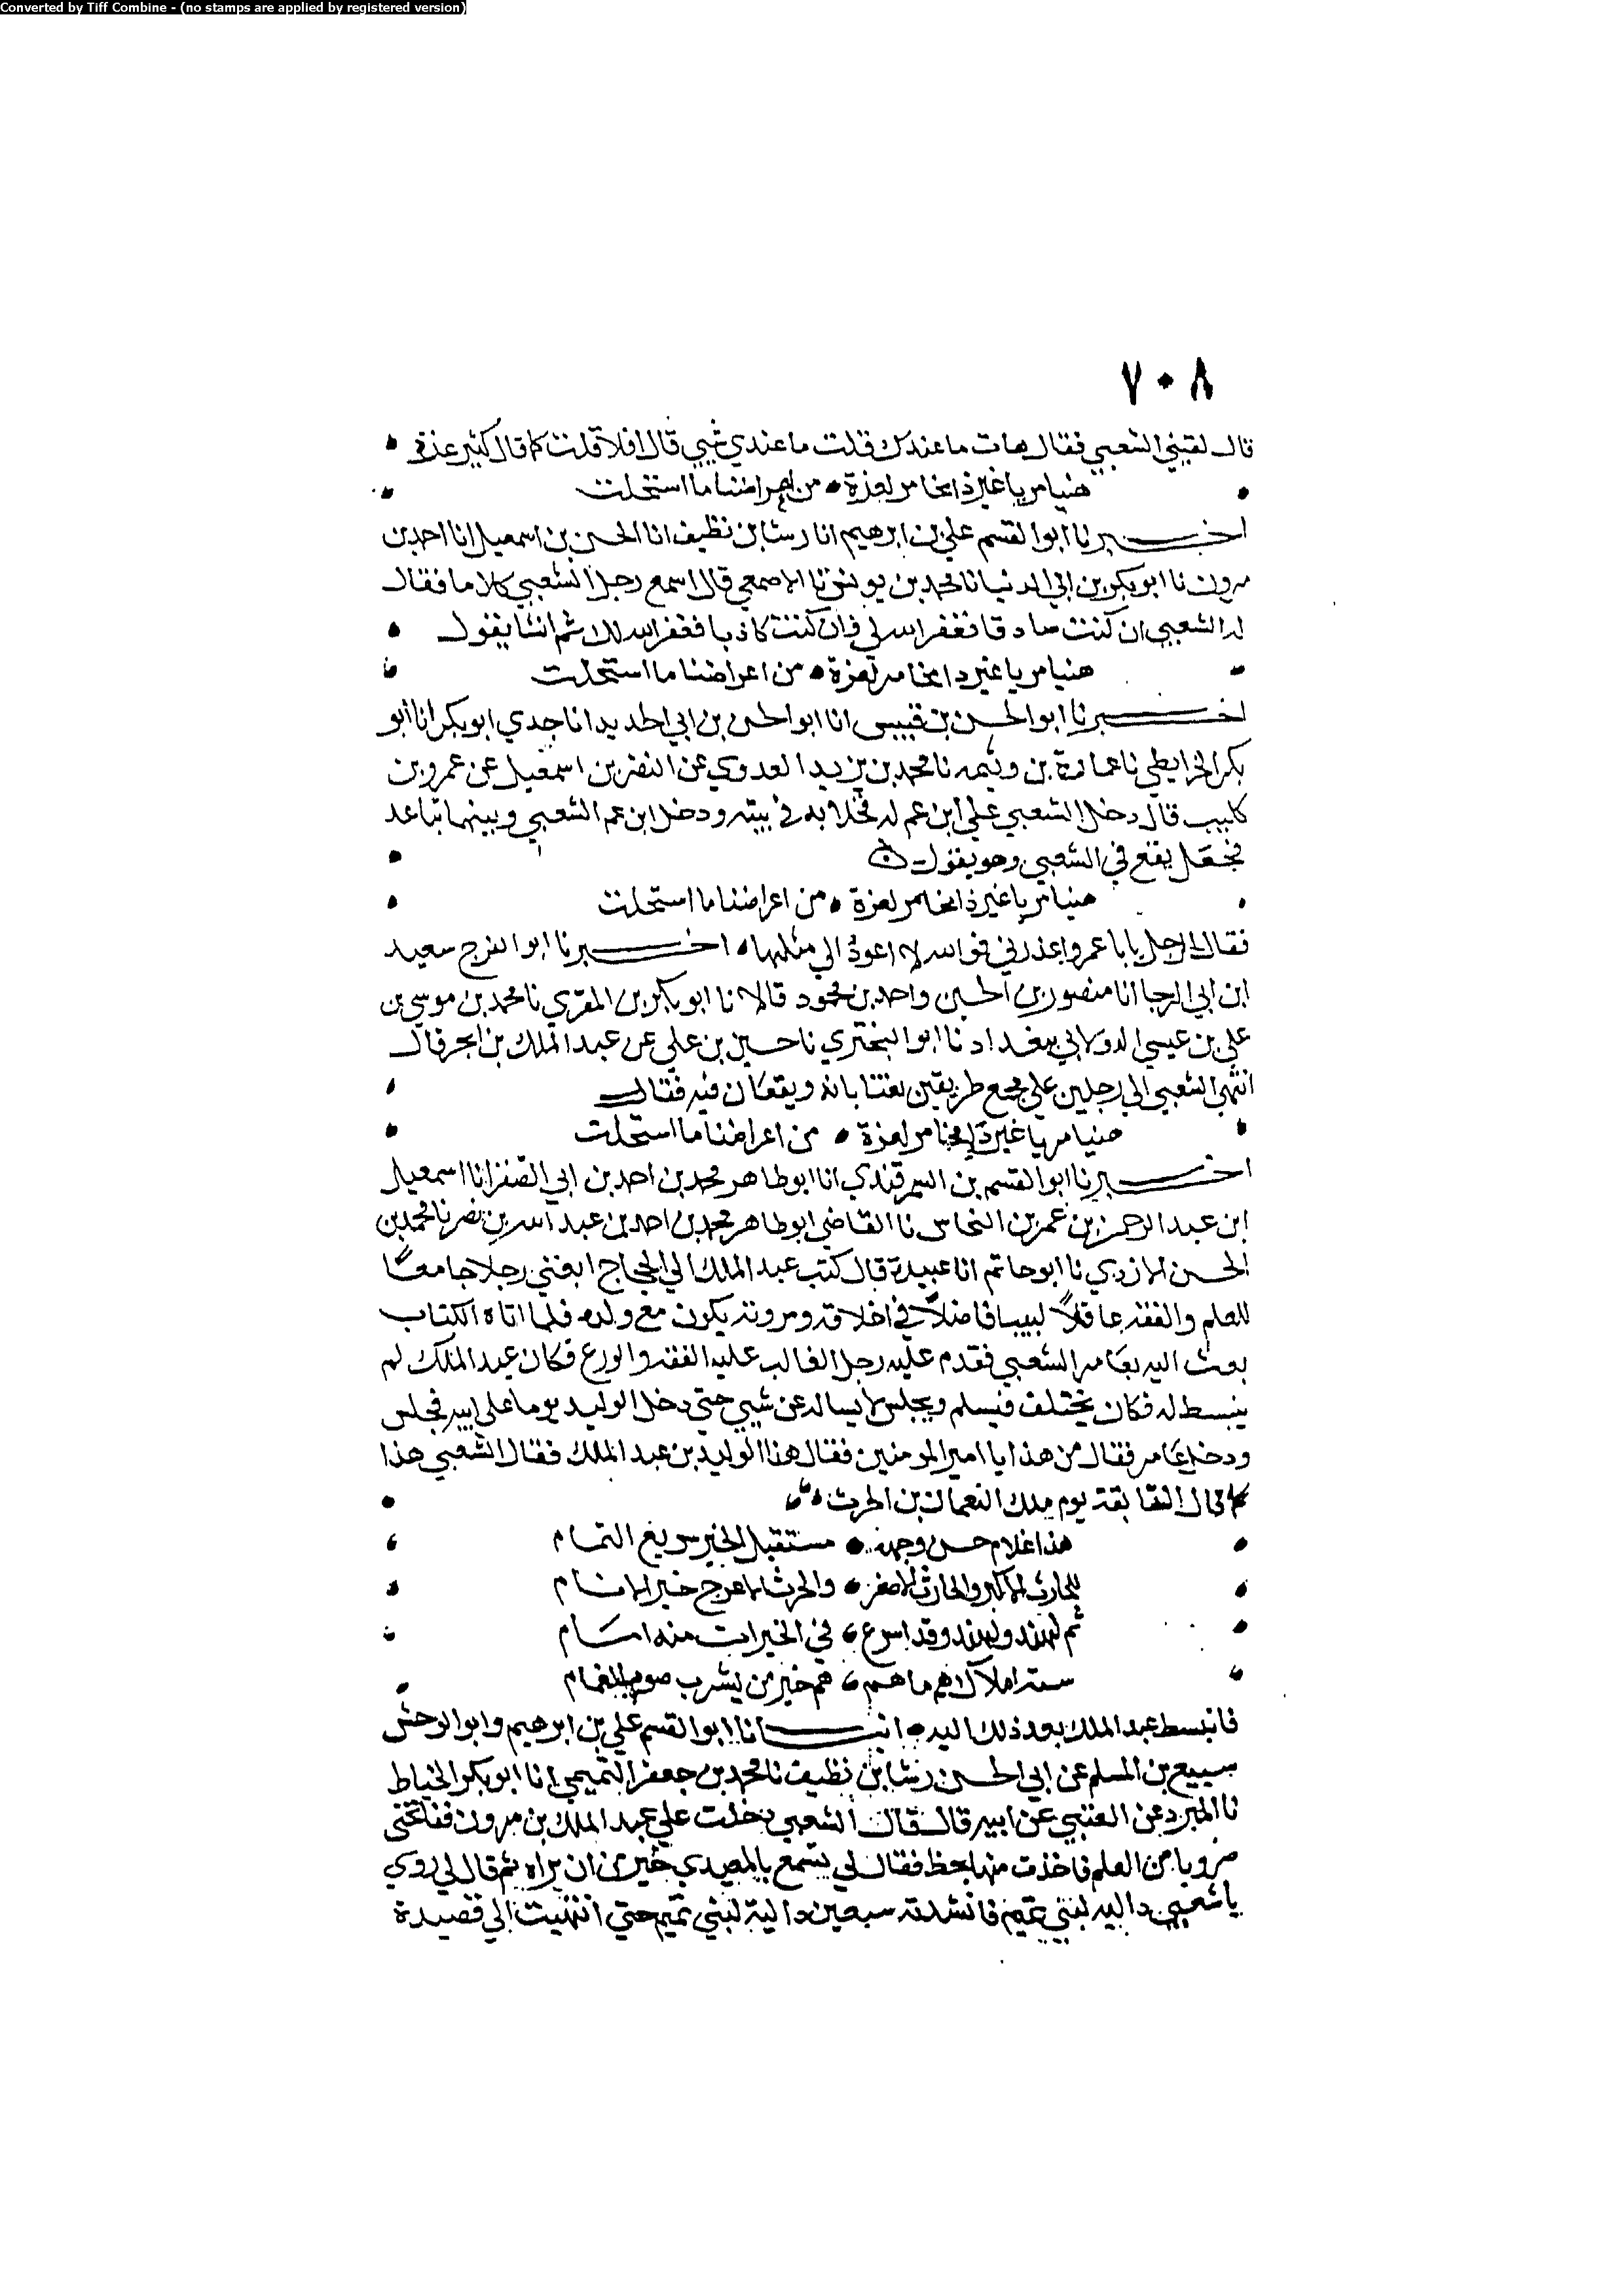 Converted by Tiff Combine - (no stamps are applied by registered version)
٧٠٨
قال لقيني الشعبي فقال هات ما عندك قلت ما عندي شيي قال افلا قلت كما قال كثير عزة
هنيا مريا غير ذا مخامر لعزة من اعراضنا ما استحلت
اخبرنا ابوالقسم علي بن ابرهيم انا رشا بن نظيف انا الحسن بن اسمعيل انا احمد بن
مرون نا ابو بكر بن ابي الدنيا نا محمد بن يونس نا الاصمعي قال اسمع رجل الشعبي كلاما فقال
له الشعبي ان كنت صادقا فغفر الله لي وان كنت كاذبا فغفر الله لك ثم انشا يقول
هنيا مريا غير دا مخامر لعزة من اعراضنا ما استحلت
اخبرنا ابوالحسن بن قبيس انا ابوالحسن بن ابي الحديد انا جدي ابو بكر انا ابو
بكر الخرايطي نا عمارة بن وثيمه نا محمد بن يزيد العدوي عن النضر بن اسمعيل عن عمرو بن
كليب قال دخل الشعبي علي ابن عم له فخلا به في بيته ودخل ابن عم الشعبي وبينهما تباعد
فجعل يقع في الشعبي وهو يقول
هنيا مريا غير ذا مخامر لعزة من اعراضنا ما استحلت
فقال الرجل يابا عمرو اعذرني فوالله لا اعود الي مثلها اخبرنا ابوالفرج سعيد
ابن ابي الرجا انا منصور بن الحسين واحمد بن محمود قالا نا ابو بكر بن المقري نا محمد بن موسي بن
علي بن عيسي الدولابي ببغداد نا ابوالبختري نا حسين بن علي عن عبد الملك بن ابجر قال
انتهي الشعبي الي رجلين علي مجمع طريقين يغتابانه ويقعان فيه فقال
هنيا مريا غير دا مخامر لعزة من اعراضنا ما استحلت
اخبرنا ابوالقسم بن السمرقندي انا ابو طاهر محمد بن احمد بن ابي الصقر انا اسمعيل
ابن عبد الرحمن بن عمر بن النحاس نا القاضي ابو طاهر محمد بن احمد بن عبد الله بن نصر نا محمد بن
الحسن الازدي نا ابو حاتم انا عبيدة قال كتب عبد الملك الي الحجاج ابعثني رجلا جامعًا
للعلم والفقه عاقلاً لبيبا فاضلاً في اخلاقه ومروته يكون مع ولده فلما اتاه الكتاب
بعث اليه بعامر الشعبي فقدم عليه رجل الغالب عليه الفقه والورع فكان عبد الملك لم
ينبسط له فكان يختلف فيسلم ويجلس لا يساله عن شيي حتي دخل الوليد يوما علي ابيه فجلس
ودخل عامر فقال من هذا يا امير المومنين فقال هذا الوليد بن عبد الملك فقال الشعبي هذا
كما قال النابغة يوم ملك النعمان بن الحرث
هذا غلام حسن وجهه مستقبل الخير سريع التمام
للحارث الاكبر والحارث الاصغر والحرث الاعرج خير الانام
ثم لهند ولهند وقد اسرع في الخيرات منه امام
ستة املاك هم ما هم هم خير من يشرب صوب الغمام
فانبسط عبد الملك بعد ذلك اليه انبانا ابوالقسم علي بن ابرهيم وابوالوحش
سبيع بن المسلم عن ابي الحسن رشا بن نظيف نا محمد بن جعفر التميمي انا ابو بكر الخياط
نا المبرد عن العتبي عن ابيه قال قال الشعبي دخلت علي عبد الملك بن مرون ففاتحني
ضروبا من العلم فاخذت منها بحظ فقال لي يسمع بالمعيدي خير من ان يراه ثم قال لي روي
يا شعبي داليه لبني تميم فانشدته سبعين دالية لبني تميم حتي انتهيت الي قصيدة